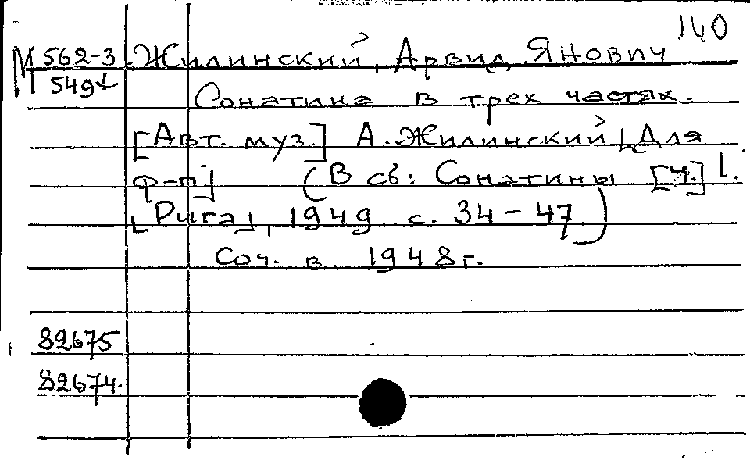 140
М 562-3 Жилинский, Арвид Янович
549
Сонатина в трех частях.
[Авт. муз.] А. Жилинский [Для
ф-п] (В сб: Сонатины [Ч.] 1.
[Рига], 1949 с. 34-47)
Соч. в 1948 г.
82675
82674.